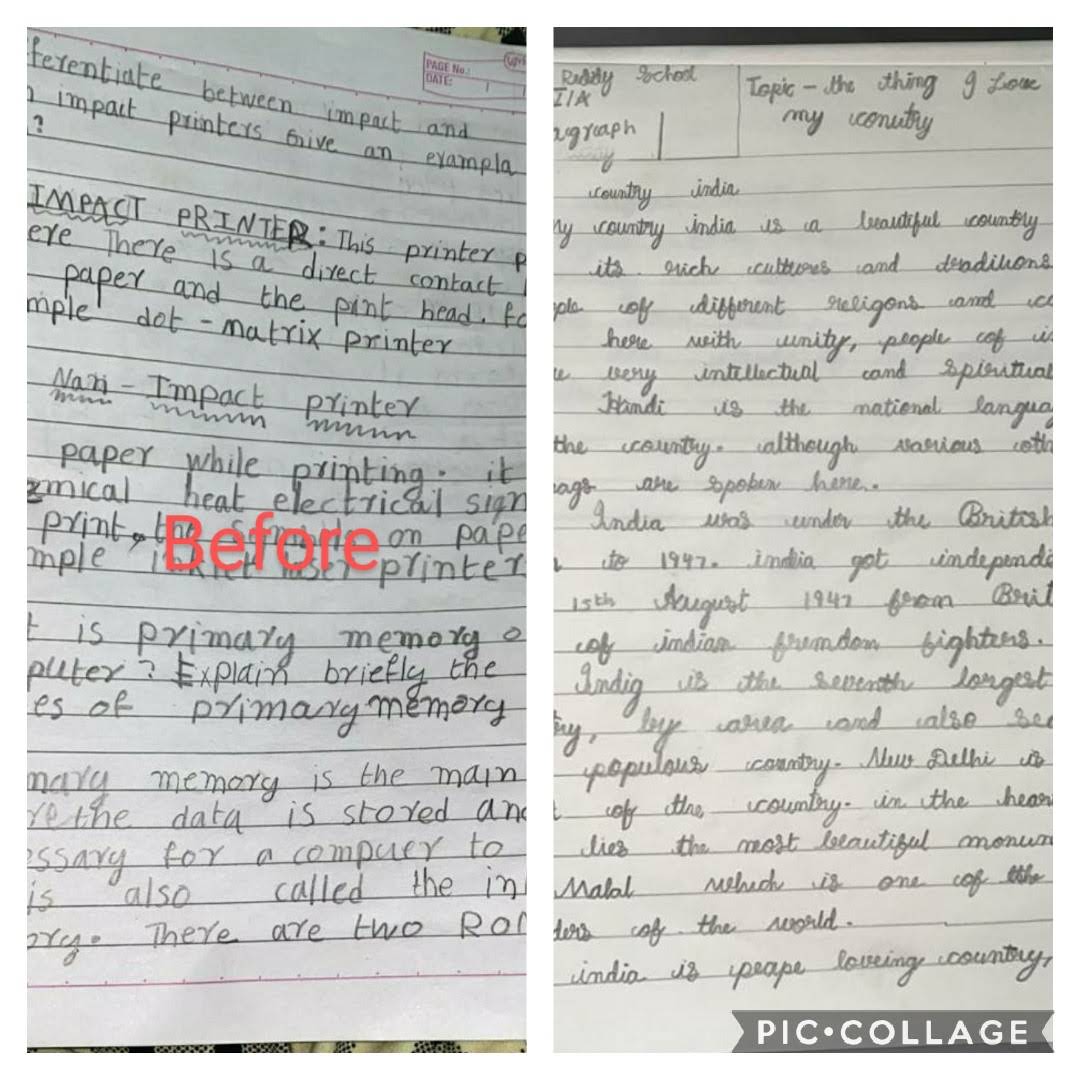 PAGE No.:
DATE:
ferentiate between impact and
impact printers Give an exampla
?
IMPACT PRINTER: This printer p
ere There is a direct contact
paper and the pint head. fo
mple dot-matrix printer
Nan - Impact printer
paper while printing. it
emical heat electrical sign
print, the on pape
mple inkjet laser printer
Before
t is primary memory o
puter? Explain briefly the
es of primary memory
mary memory is the main
re the data is stored and
essary for a compuer to
is also called the in
ory. There are two ROM
Reddy School
I/A
agraph
Topic - the thing I Love
my conutry
country india
My country india is a beautiful country
its rich cultures and traditions
ple of different religons and cc
here with unity, people of i
e very intellectual and Spiritual
Hindi is the national langua
the country. although various oth
ags are spoken here.
India was under the British
to 1947. india got independ
15th August 1947 from Brit
of indian fremdom fighters.
Indig is the seventh largest
try, by area and also sec
populous country. New Delhi is
of the country. in the hear
lies the most beautiful monum
Mahal which is one of the
ders of the world.
india is peape loveing country,
PIC•COLLAGE